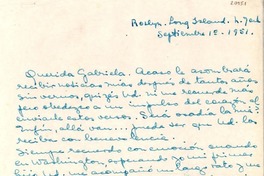 20951
Roslyn. Long Island. N. York
Septiembre 15. 1951.
Querida Gabriela. Acaso le asombrará
recibir noticias mías después de tantos años
sin vernos, quizás Ud. ni me recuerda más
pero obedezco a un impulso del corazón al
enviarle estos versos. Será osadía la mía?
En fin, allá van, puede ser que Ud. los
reciba con benevolencia.
Siempre recuerdo con emoción cuando
en Washington, esperando yo mi primer
hijo Ud. me acompañó un largo rato y me